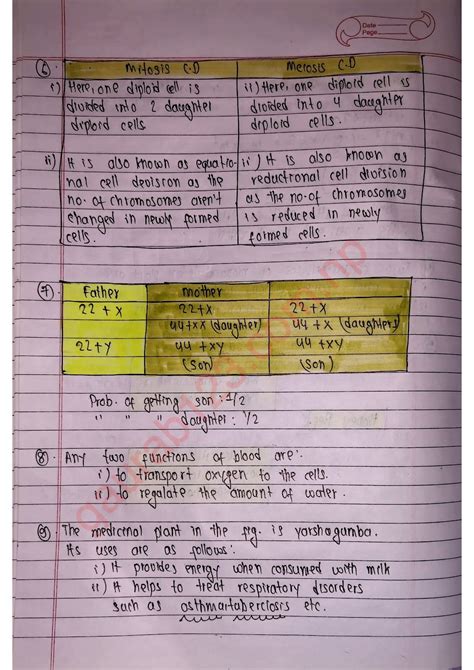 Date
Page
6.
Mitosis C.D
Meiosis C.D
i) Here, one diploid cell is
divided into 2 daughter
diploid cells
ii) Here, one diploid cell is
divided into 4 daughter
diploid cells.
ii) It is also known as equatio-
nal cell devision as the
no. of chromosomes aren't
changed in newly formed
cells.
ii) It is also known as
reductional cell division
as the no. of chromosomes
is reduced in newly
formed cells.
7.
Father
mother
22 + x
22+x
22+x
44+xx (daughter)
44 + x (daughters)
22+y
44 + xy
44 + xy
(son)
(son)
Prob. of getting son : 1/2
" " " daughter : 1/2
8. Any two functions of blood are:
i) to transport oxygen to the cells.
ii) to regalate the amount of water.
9. The medicinal plant in the fig. is yarshagumba.
Its uses are as follows:
i) It provides energy when consumed with milk
ii) It helps to treat respiratory disorders
such as asthmartaberclosis etc.